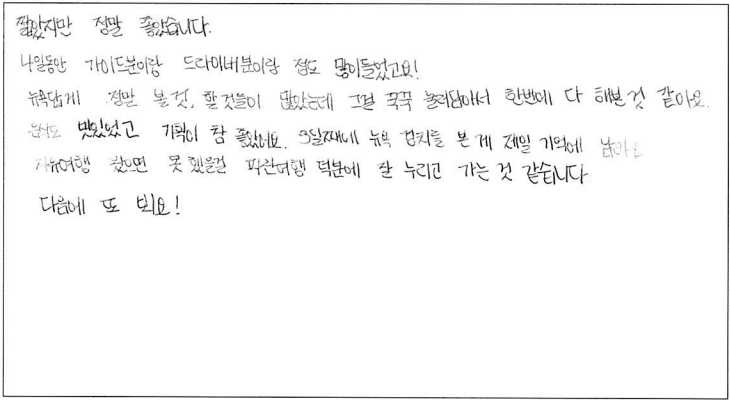 짧았지만 정말 좋았습니다.
4일동안 가이드분이랑 드라이버분이랑 정도 많이들었고요!
뉴욕답게 정말 볼 것, 할 것들이 많았는데 그걸 꾹꾹 눌러담아서 한번에 다 해본 것 같아요.
음식도 맛있었고 기획이 참 좋았어요. 3일째에 뉴욕 경치를 본 게 제일 기억에 남아요
자유여행 왔으면 못 했을걸 파란여행 덕분에 잘 누리고 가는 것 같습니다
다음에 또 뵈요!